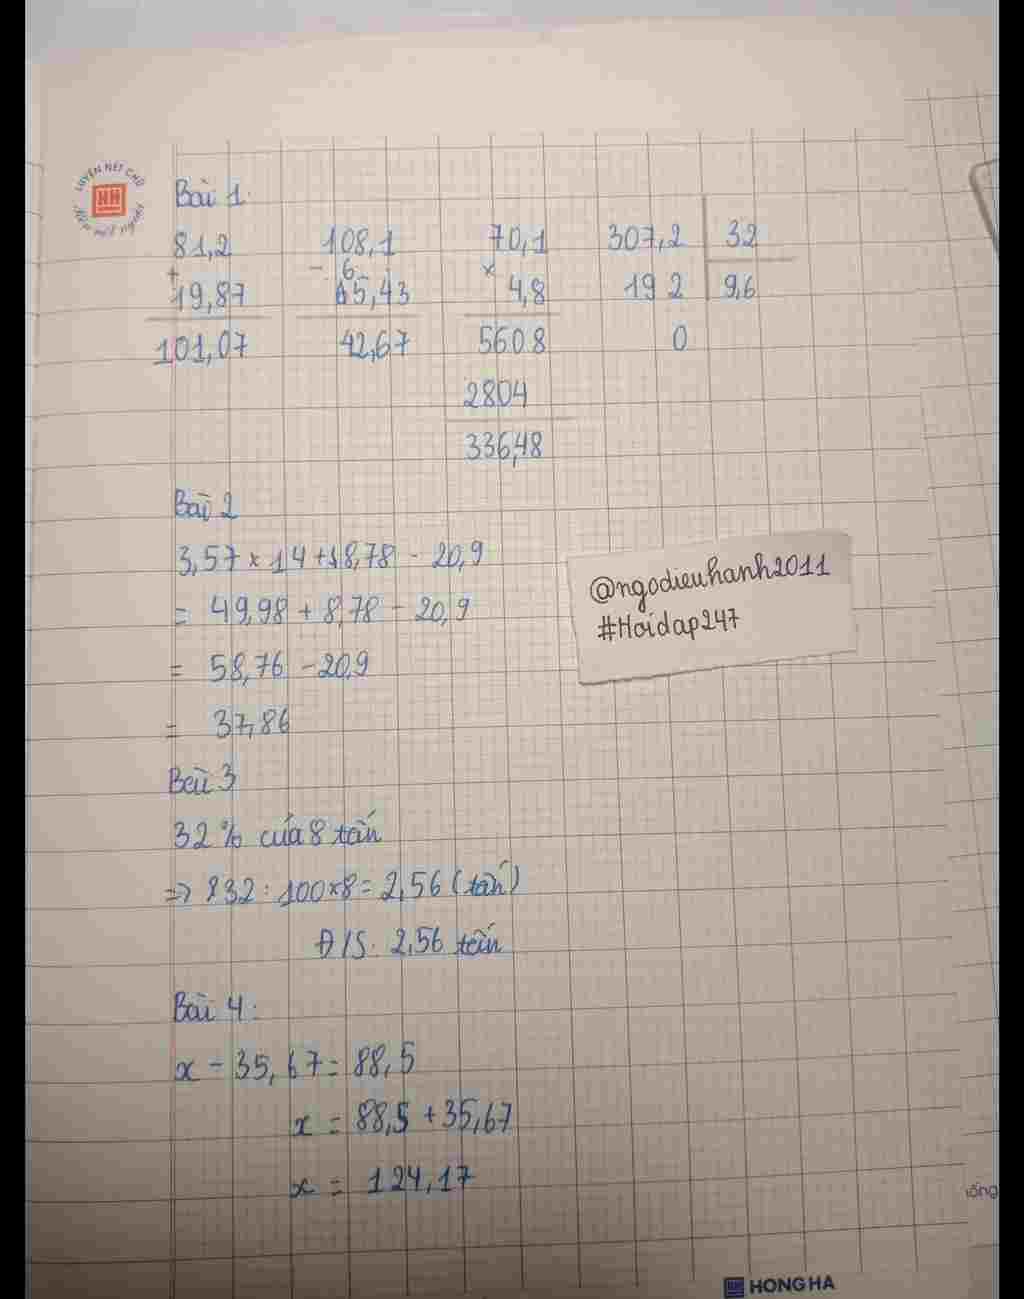 LUYỆN NÉT CHỮ
Rèn nết người
Bài 1:
81,2 108,1 70,1 307,2 32
+ - 6 x
19,87 65,43 4,8 19 2 9,6
101,07 42,67 5608 0
2804
336,48
Bài 2
3,57 x 14 + 8,78 - 20,9
= 49,98 + 8,78 - 20,9
= 58,76 - 20,9
= 37,86
Bài 3
32 % của 8 tấn
=> 32 : 100 x 8 = 2,56 (tấn)
Đ/S: 2,56 tấn
Bài 4:
x - 35,67 = 88,5
x = 88,5 + 35,67
x = 124,17
@ngodieuhanh2011
#Hoidap247
HONG HA